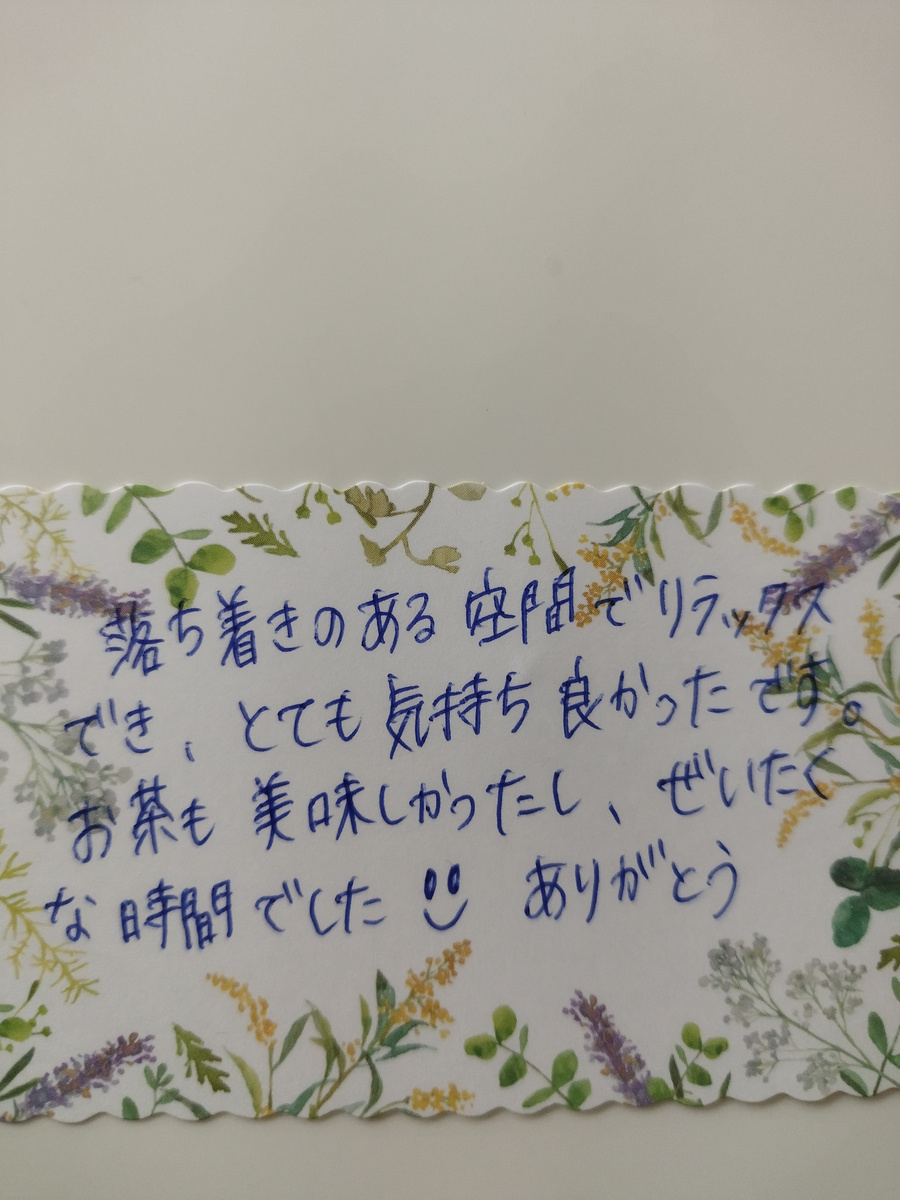 落ち着きのある空間でリラックス
でき、とても気持ち良かったです。
お茶も美味しかったし、ぜいたく
な時間でした ありがとう